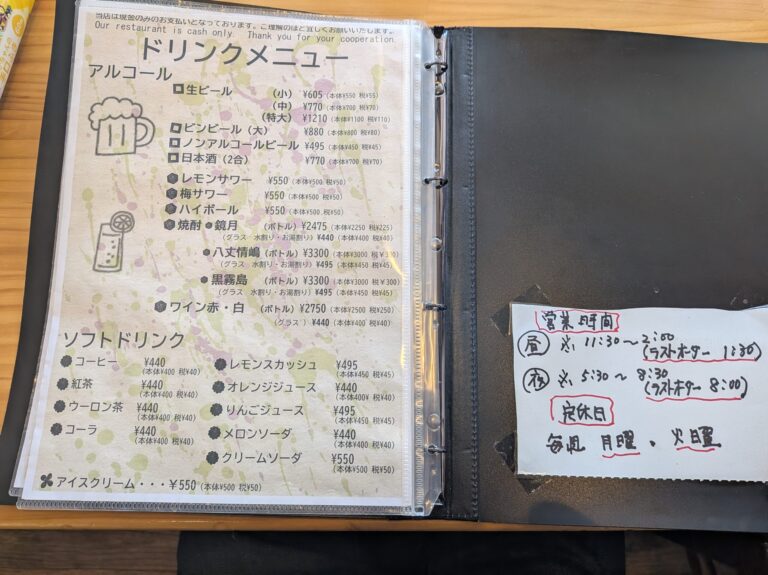 当店は現金のみのお支払いとなっております。ご理解のほど宜しくお願いいたします。
Our restaurant is cash only. Thank you for your cooperation.
ドリンクメニュー
アルコール
生ビール (小) ¥605(本体¥550 税¥55)
(中) ¥770(本体¥700 税¥70)
(特大) ¥1210(本体¥1100 税¥110)
ビンビール(大) ¥880(本体¥800 税¥80)
ノンアルコールビール ¥495(本体¥450 税¥45)
日本酒(2合) ¥770(本体¥700 税¥70)
レモンサワー ¥550(本体¥500 税¥50)
梅サワー ¥550(本体¥500 税¥50)
ハイボール ¥550(本体¥500 税¥50)
焼酎 ●鏡月 (ボトル)¥2475(本体¥2250 税¥225)
(グラス 水割り・お湯割り)¥440(本体¥400 税¥40)
●八丈情嶋(ボトル)¥3300(本体¥3000 税¥300)
(グラス 水割り・お湯割り)¥495(本体¥450 税¥45)
●黒霧島 (ボトル)¥3300(本体¥3000 税¥300)
(グラス 水割り・お湯割り)¥495(本体¥450 税¥45)
ワイン赤・白 (ボトル)¥2750(本体¥2500 税¥250)
(グラス)¥440(本体¥400 税¥40)
ソフトドリンク
コーヒー ¥440
(本体¥400 税¥40)
紅茶 ¥440
(本体¥400 税¥40)
ウーロン茶 ¥440
(本体¥400 税¥40)
コーラ ¥440
(本体¥400 税¥40)
レモンスカッシュ ¥495
(本体¥450 税¥45)
オレンジジュース ¥440
(本体¥400 税¥40)
りんごジュース ¥495
(本体¥450 税¥45)
メロンソーダ ¥440
(本体¥400 税¥40)
クリームソーダ ¥550
(本体¥500 税¥50)
アイスクリーム・・・¥550(本体¥500 税¥50)
営業時間
昼 ※ 11:30〜2:00
(ラストオーダー 1:30)
夜 ※ 5:30〜8:30
(ラストオーダー 8:00)
定休日
毎週 月曜、火曜